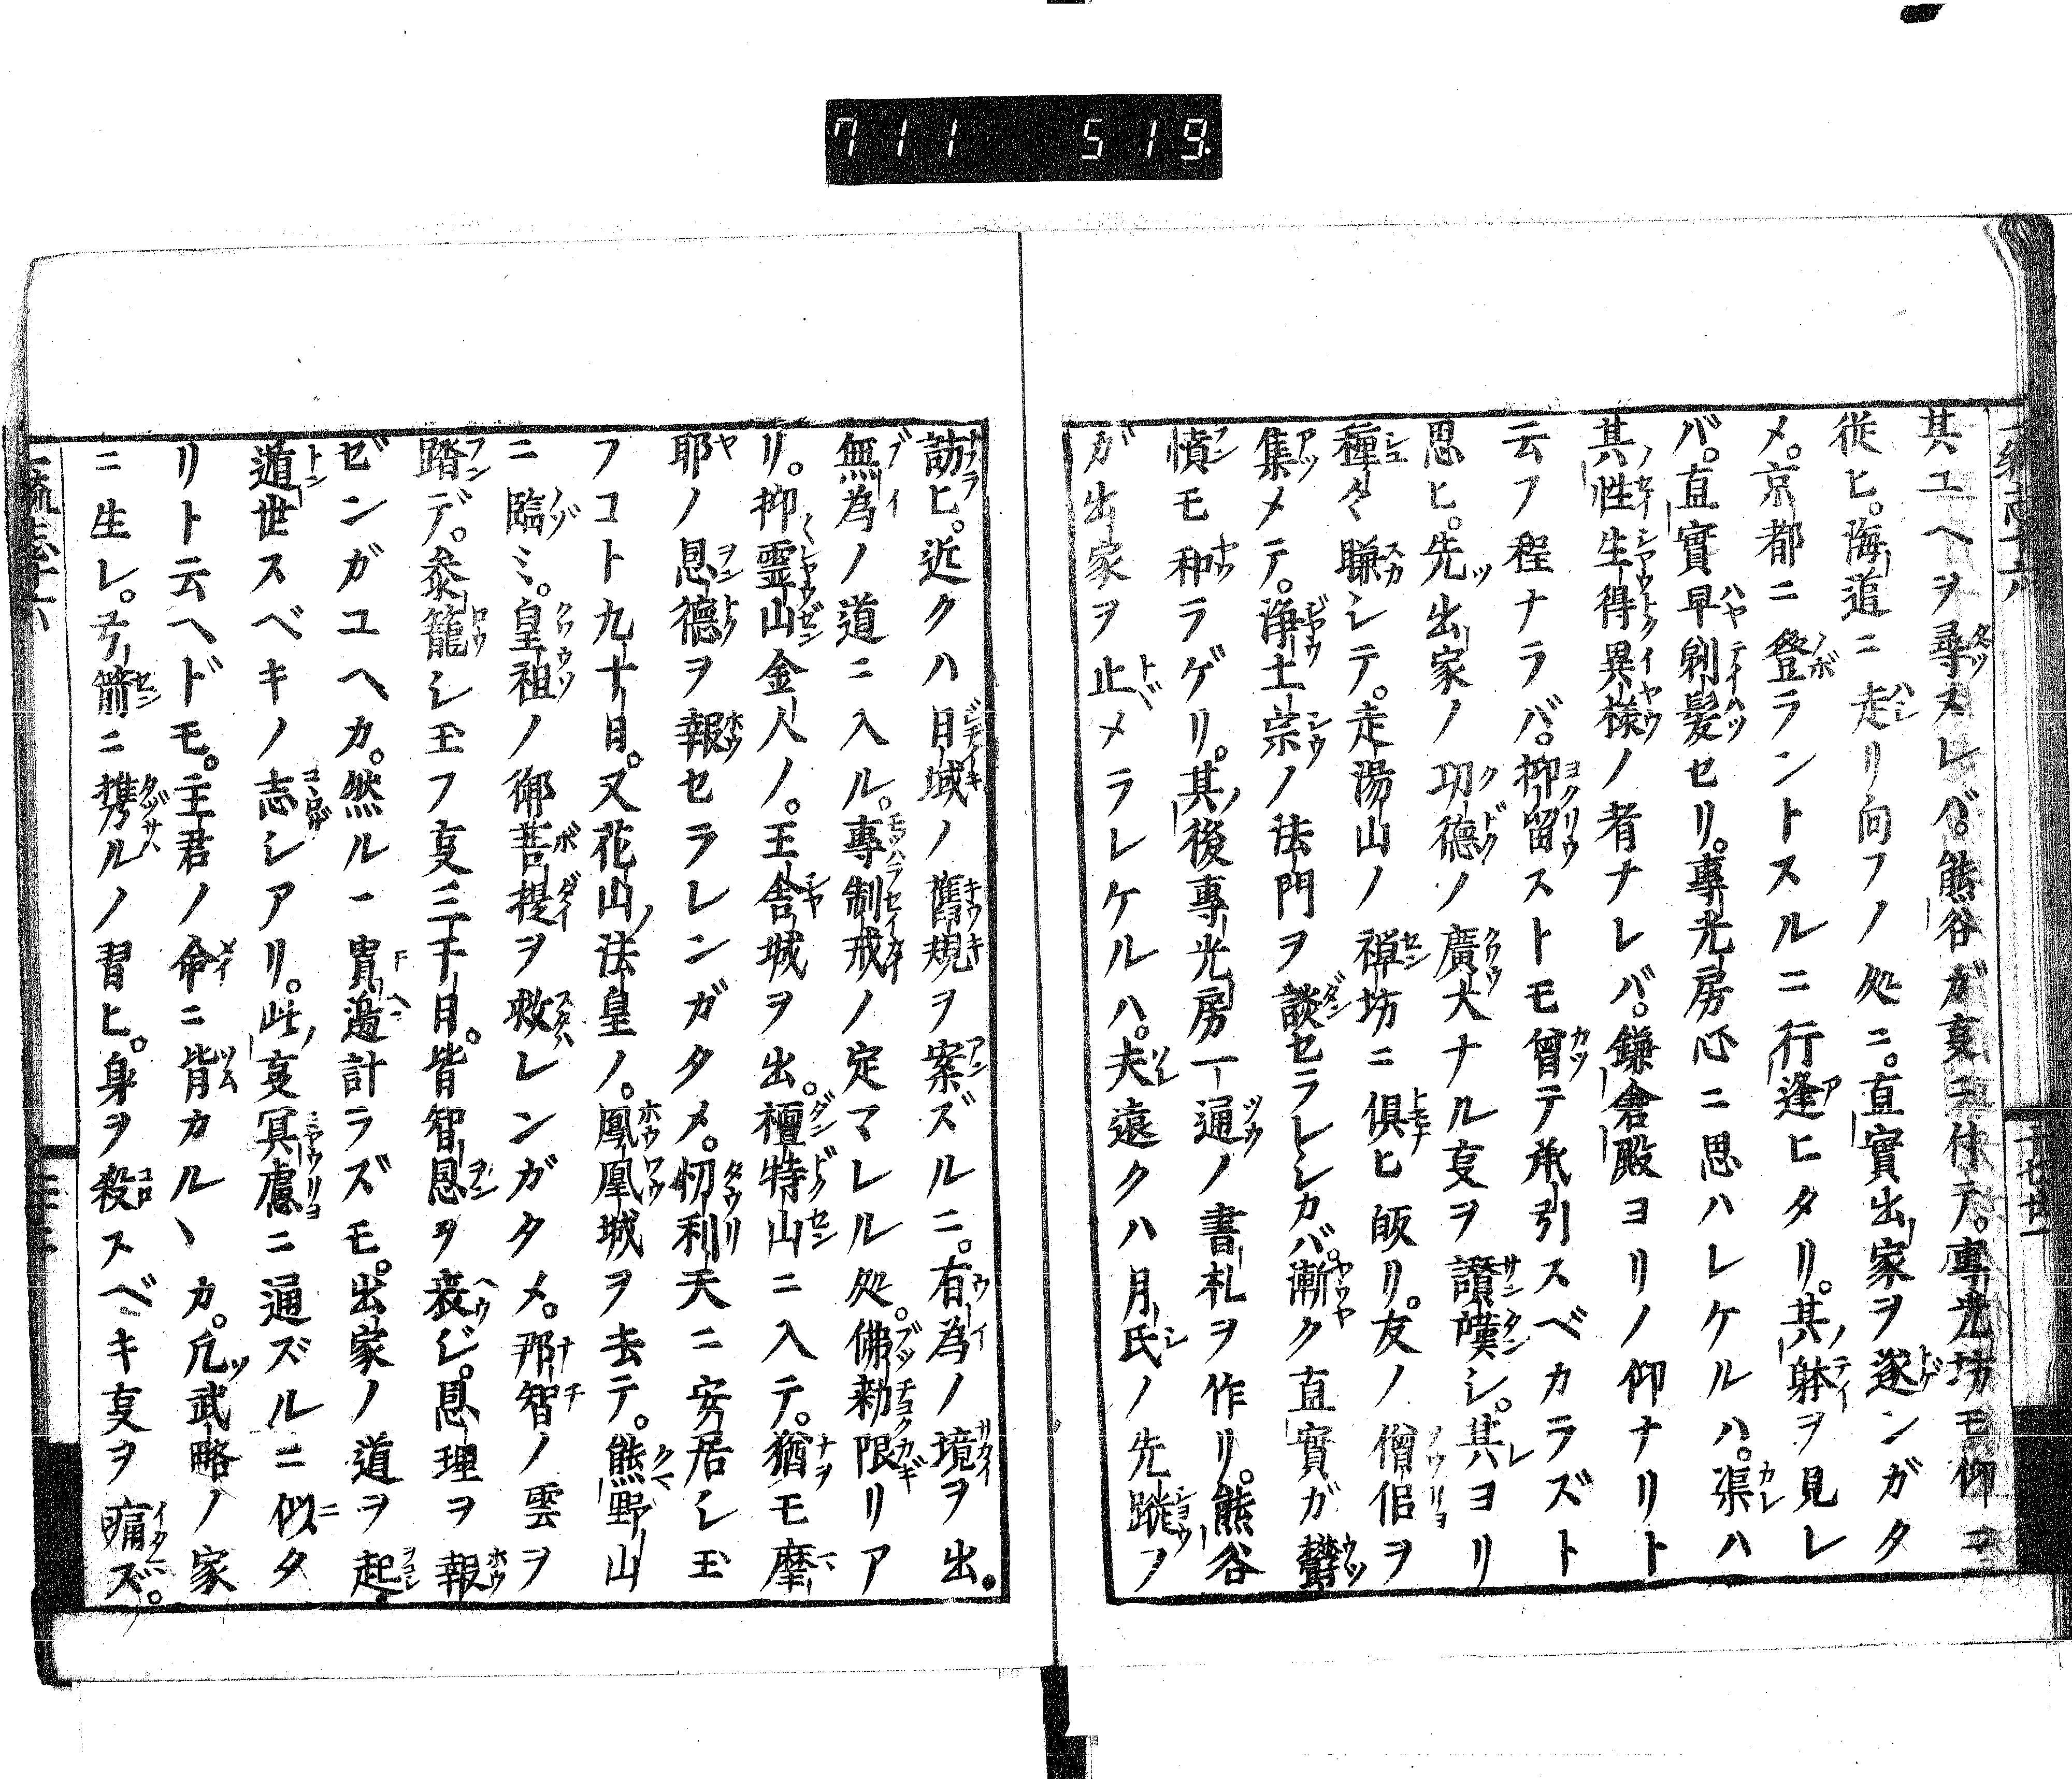 711 519.
其ユヘヲ尋スレバ。熊谷ガ㕝ニ付テ。專光坊モ仰ニ
從ヒ。海道ニ走リ向フノ処ニ。直實出家ヲ遂ンガタ
メ。京都ニ登ラントスルニ行逢ヒタリ。其躰ヲ見レ
バ。直實早剃髪セリ。專光房心ニ思ハレケルハ。渠ハ
其性生得異様ノ者ナレバ。鎌倉殿ヨリノ仰ナリト
云フ程ナラバ。抑留ストモ曾テ承引スベカラズト
思ヒ。先出家ノ功德ノ廣大ナル㕝ヲ讃嘆シ。其ヨリ
種々賺シテ。走湯山ノ禅坊ニ俱ヒ皈リ。友ノ僧侶ヲ
集メテ。浄土宗ノ法門ヲ談セラレシカバ。漸ク直實ガ鬱
憤モ和ラゲリ。其後專光房一通ノ書札ヲ作リ。熊谷
ガ出家ヲ止メラレケルハ。夫遠クハ月氏ノ先蹤ノ
訪ヒ。近クハ日域ノ舊規ヲ案ズルニ。有為ノ境ヲ出。
無為ノ道ニ入ル。專制戒ノ定マレル処。佛勅限リア
リ。抑霊山金人ノ。王舎城ヲ出。檀特山ニ入テ。猶モ摩
耶ノ恩德ヲ報セラレンガタメ。忉利天ニ安居シ玉
フコト九十日。又花山ノ法皇ノ。鳳凰城ヲ去テ。熊野山
ニ臨ミ。皇祖ノ御菩提ヲ救レンガタメ。那智ノ雲ヲ
踏デ。叅籠シ玉フ㕝三千日。皆智恩ヲ表ジ。恩理ヲ報
ゼンガユヘカ。然ル一實邉計ラズモ。出家ノ道ヲ起。
遁世スベキノ志シアリ。此㕝冥慮ニ通ズルニ似タ
リト云ヘドモ。主君ノ命ニ背カルヽカ。凡武略ノ家
ニ生レ。弓箭ニ携ルノ習ヒ。身ヲ殺スベキ㕝ヲ痛ズ。